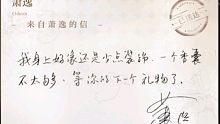 萧逸
来自萧逸的信
我身上好像还是少点装饰，一个香囊
不太够，等你的下一个礼物了。
萧逸